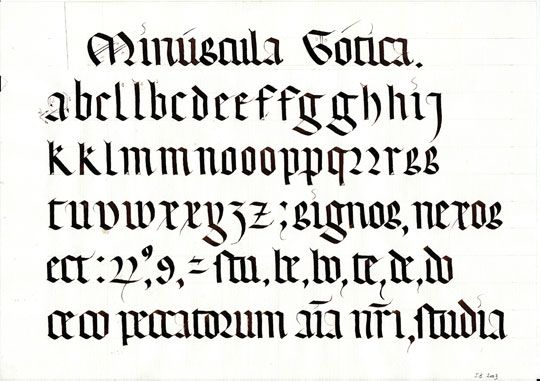 Minúscula Gótica.
abcllbcdeeffgghhij
kklmmnoooppqꝛꝛrss
tuvwxxyzz; signos, nexos
ect: ꝛꝛ, 9, = stu, be, bo, te, de, do
ce co peccatorum aīa nr̄i, studia